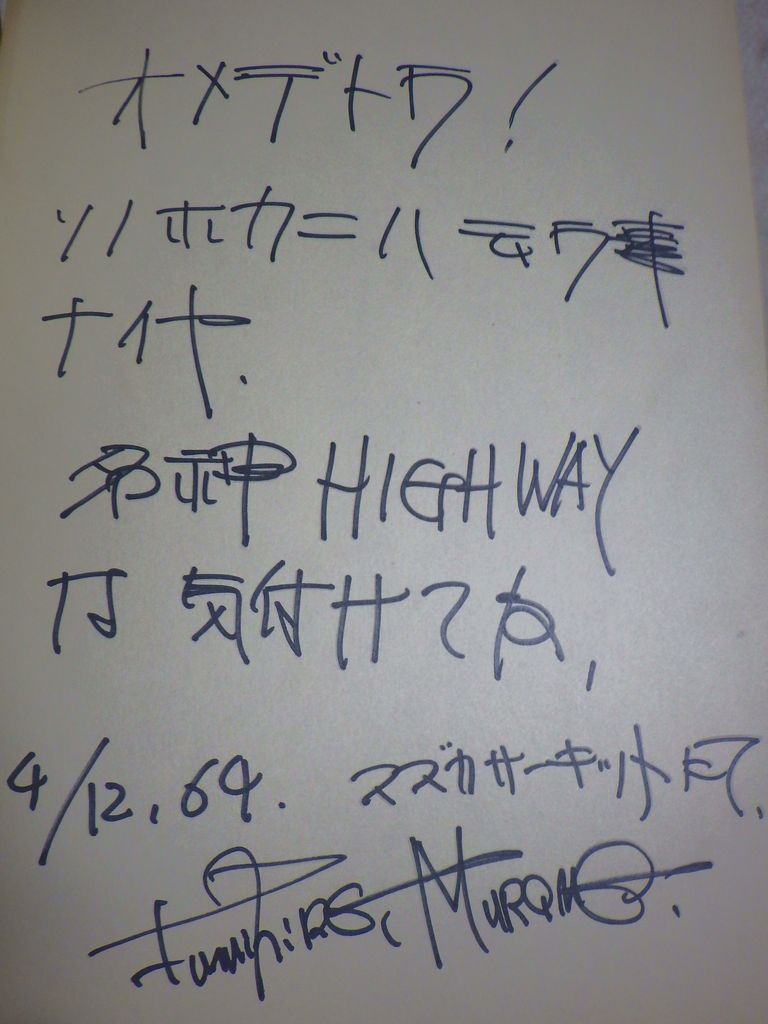 オメデトウ!
ソノホカニハ 云ウ事
ナイヤ.
名神 HIGHWAY
気付けてね,
4/12, 64. スズカサーキットにて.